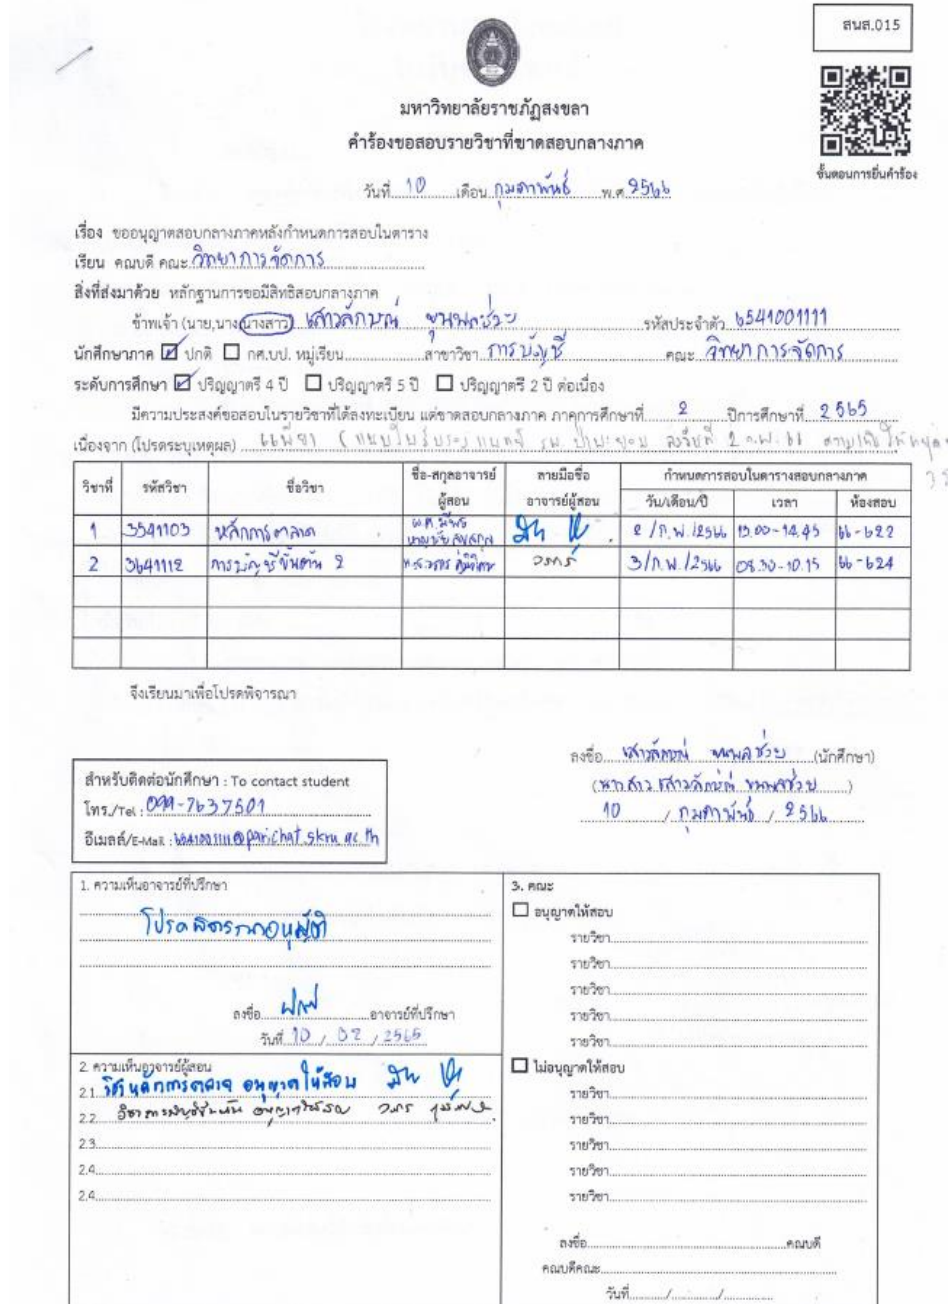 สนส.015
มหาวิทยาลัยราชภัฏสงขลา
คำร้องขอสอบรายวิชาที่ขาดสอบกลางภาค
ขั้นตอนการยื่นคำร้อง
วันที่ 10 เดือน กุมภาพันธ์ พ.ศ. 2566
เรื่อง ขออนุญาตสอบกลางภาคหลังกำหนดการสอบในตาราง
เรียน คณบดี คณะ วิทยาการจัดการ
สิ่งที่ส่งมาด้วย หลักฐานการขอมีสิทธิสอบกลางภาค
ข้าพเจ้า (นาย,นาง,นางสาว) เสาวลักษณ์ ขุนพลช่วย รหัสประจำตัว 6541001111
นักศึกษาภาค ปกติ กศ.บป. หมู่เรียน สาขาวิชา การบัญชี คณะ วิทยาการจัดการ
ระดับการศึกษา ปริญญาตรี 4 ปี ปริญญาตรี 5 ปี ปริญญาตรี 2 ปี ต่อเนื่อง
มีความประสงค์ขอสอบในรายวิชาที่ได้ลงทะเบียน แต่ขาดสอบกลางภาค ภาคการศึกษาที่ 2 ปีการศึกษาที่ 2565
เนื่องจาก (โปรดระบุเหตุผล) แพ้ยา (แนบใบรับรองแพทย์ รพ. ป่าพะยอม ลงวันที่ 2 ก.พ. 66
วิชาที่ รหัสวิชา ชื่อวิชา ชื่อ-สกุลอาจารย์ผู้สอน ลายมือชื่ออาจารย์ผู้สอน กำหนดการสอบในตารางสอบกลางภาค
วัน/เดือน/ปี เวลา ห้องสอบ
1 3541103 หลักการตลาด 2 /ก.พ./2566 13.00-14.45 66-622
2 3641112 การบัญชีขั้นต้น 2 3/ก.พ./2566 08.30-10.15 66-624
จึงเรียนมาเพื่อโปรดพิจารณา
ลงชื่อ เสาวลักษณ์ ขุนพลช่วย (นักศึกษา)
(นางสาว เสาวลักษณ์ ขุนพลช่วย)
10 / กุมภาพันธ์ / 2566
สำหรับติดต่อนักศึกษา : To contact student
โทร./Tel : 099-7637501
อีเมลล์/E-Mail : 6541001111@parichat.skru.ac.th
1. ความเห็นอาจารย์ที่ปรึกษา
โปรดพิจารณาอนุมัติ
ลงชื่อ อาจารย์ที่ปรึกษา
วันที่ 10 / 02 / 2565
2. ความเห็นอาจารย์ผู้สอน
2.1 วิชาหลักการตลาด อนุญาตให้สอบ
2.2 วิชาการบัญชีขั้นต้น อนุญาตให้สอบ
2.3
2.4
2.4
3. คณะ
อนุญาตให้สอบ
รายวิชา
รายวิชา
รายวิชา
รายวิชา
รายวิชา
ไม่อนุญาตให้สอบ
รายวิชา
รายวิชา
รายวิชา
รายวิชา
รายวิชา
ลงชื่อ คณบดี
คณบดีคณะ
วันที่ / /